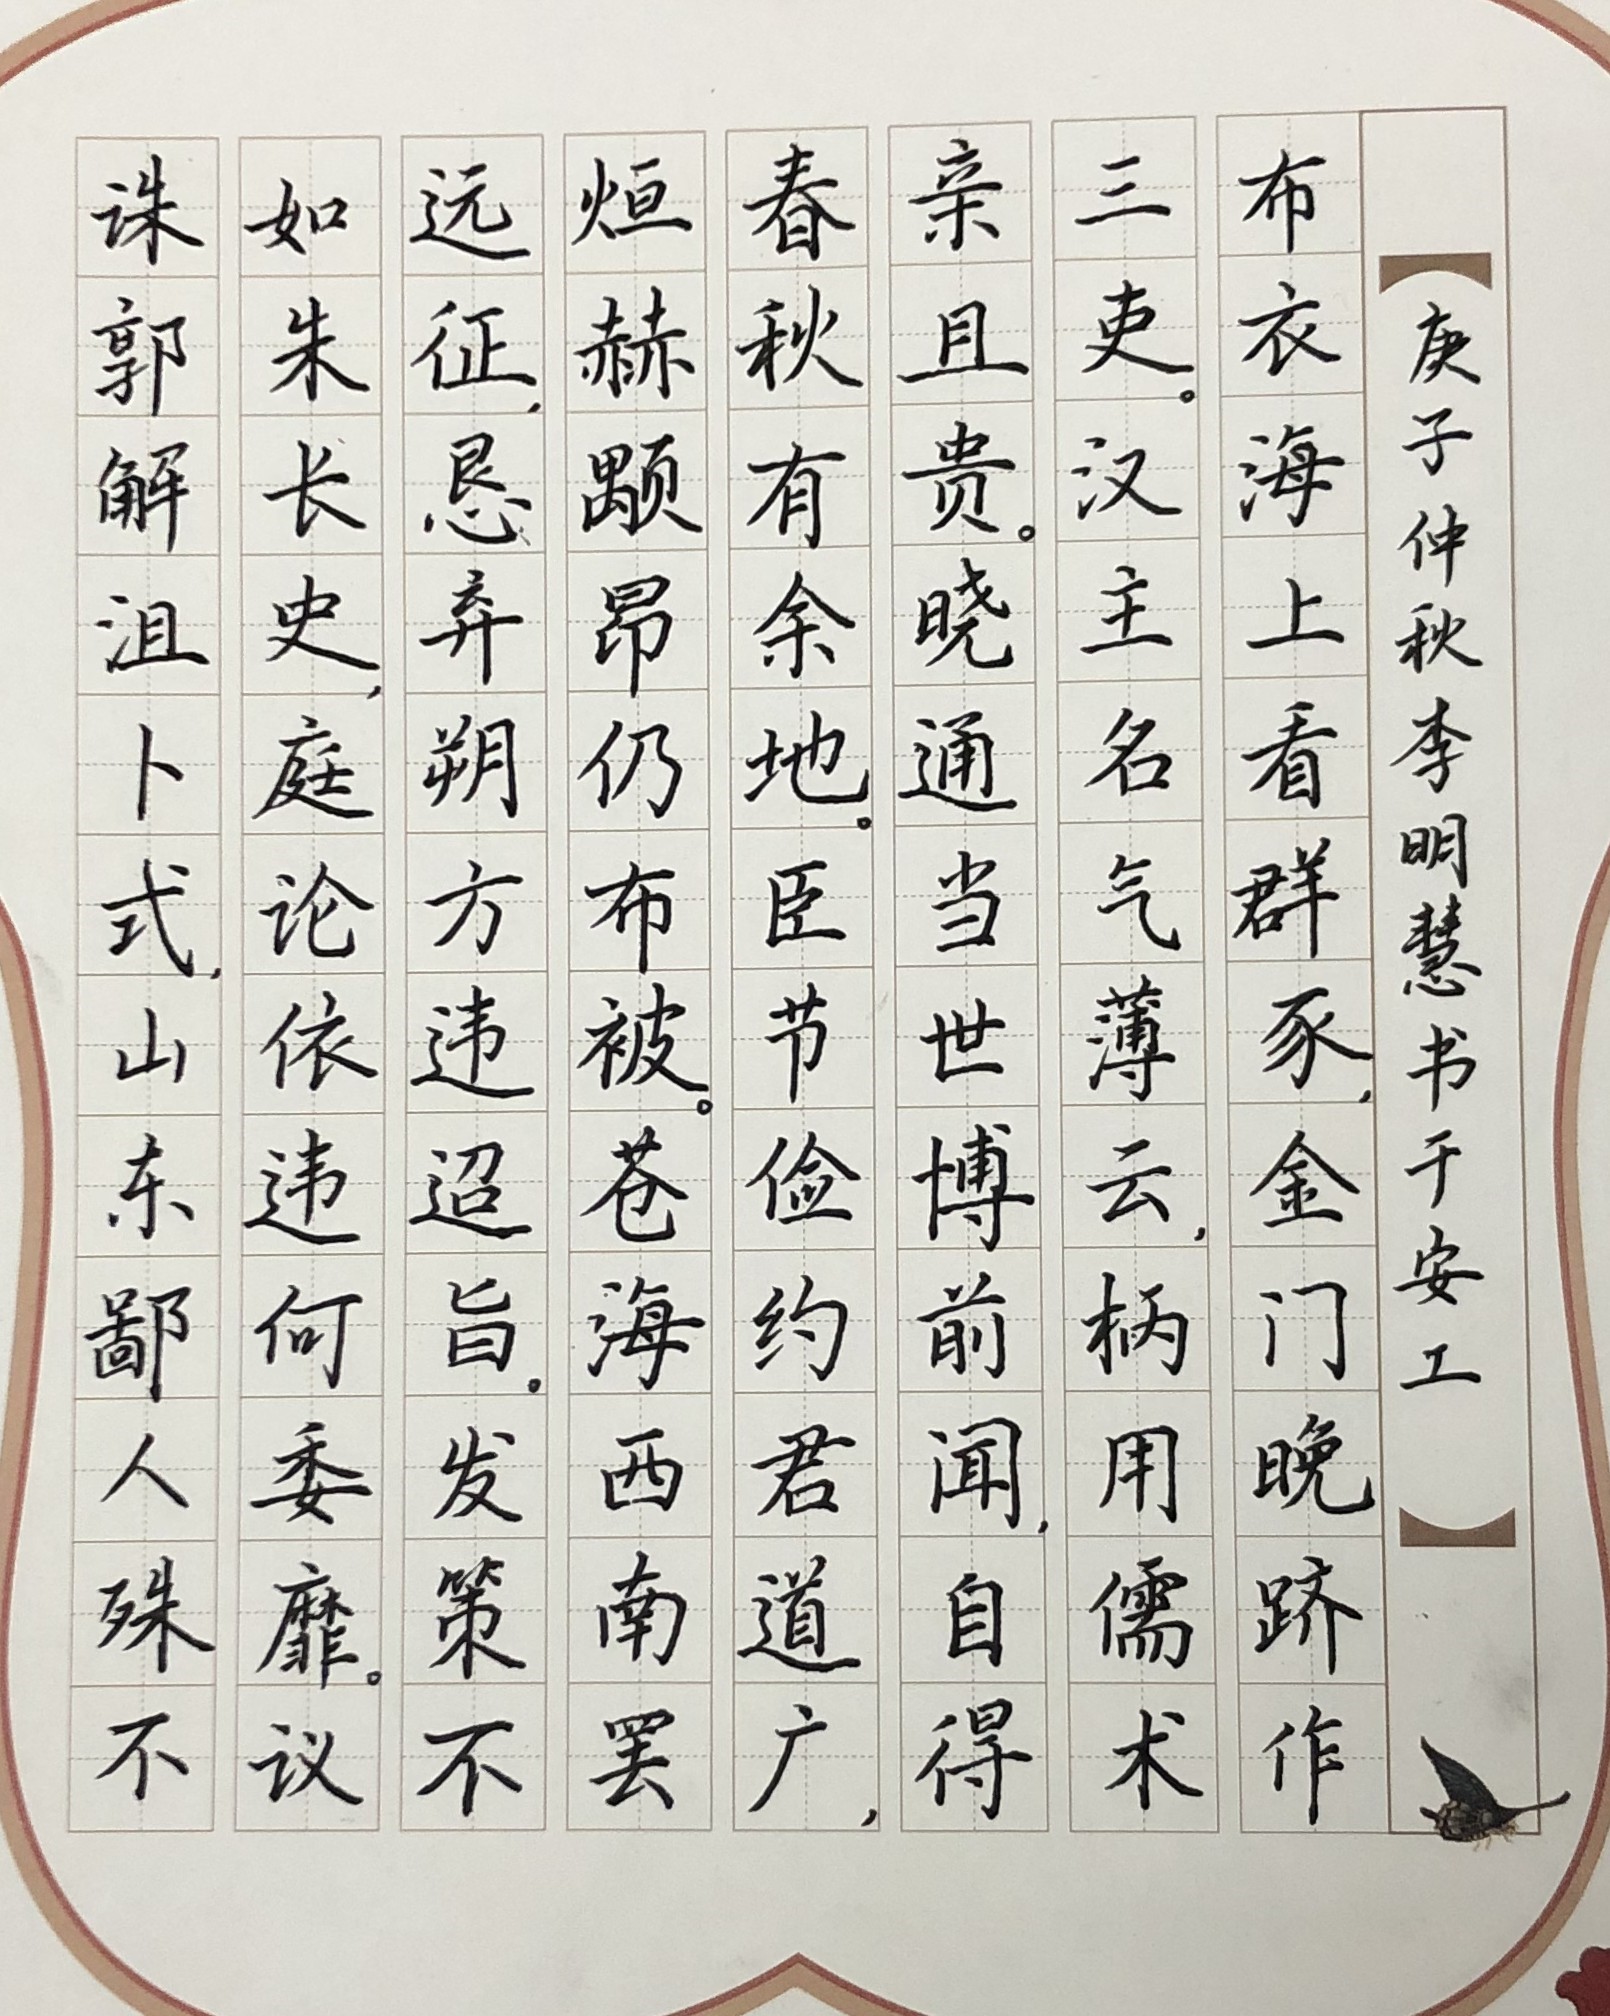 庚子仲秋李明慧书于安工
布衣海上看群豕,金门晚跻作
三吏。汉主名气薄云,柄用儒术
亲且贵。晓通当世博前闻,自得
春秋有余地。臣节俭约君道广,
烜赫颙昂仍布被。苍海西南罢
远征,恳弃朔方违迢旨.发策不
如朱长史,庭论依违何委靡。议
诛郭解沮卜式,山东鄙人殊不